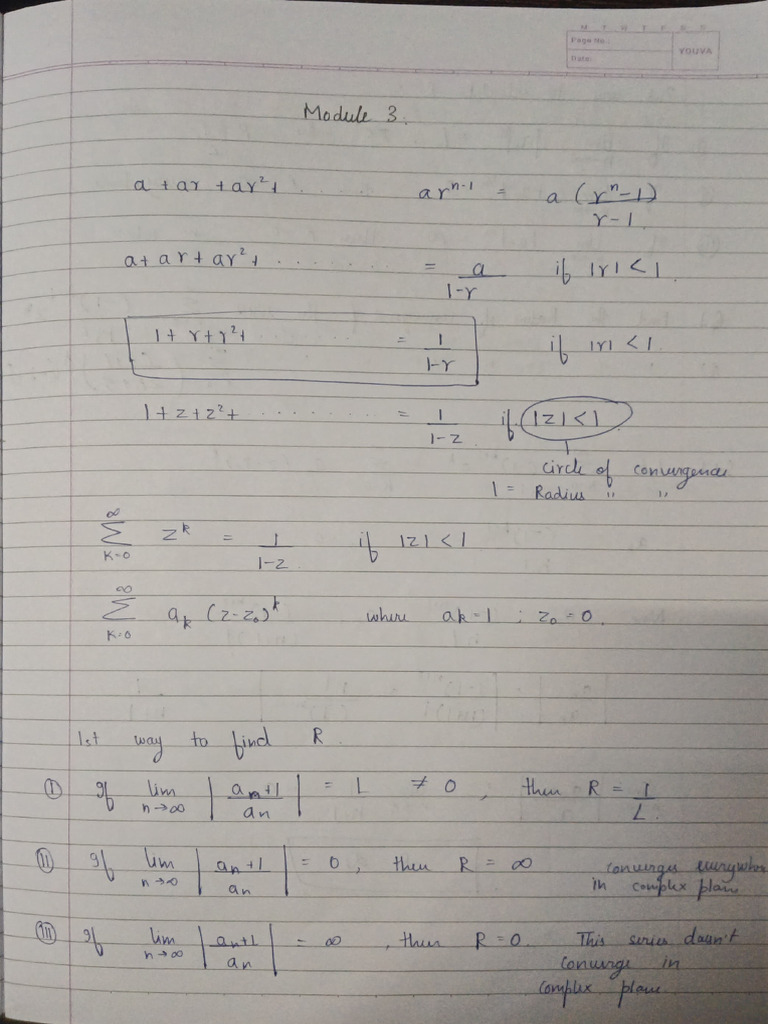 M T W T F S S
Page No.:
YOUVA
Date:
Module 3.
a + ar + ar² + . . . . . arⁿ⁻¹ = a (rⁿ-1)/(r-1)
a + ar + ar² + . . . . . . . . = a/(1-r) if |r| < 1.
1 + r + r² + . . . . . . . = 1/(1-r) if |r| < 1.
1 + z + z² + . . . . . . . . = 1/(1-z) if |z| < 1.
circle of convergence
1 = Radius " "
∞ Σ K=0 zᵏ = 1/(1-z) if |z| < 1.
∞ Σ K=0 aₖ (z-z₀)ᵏ where ak = 1 ; z₀ = 0.
1st way to find R.
(I) If lim n→∞ |aₙ+1/aₙ| = L ≠ 0, then R = 1/L.
(II) If lim n→∞ |aₙ+1/aₙ| = 0, then R = ∞ converges everywhere
in complex plane
(III) If lim n→∞ |aₙ+1/aₙ| = ∞, then R = 0. This series dosn't
converge in
complex plane.